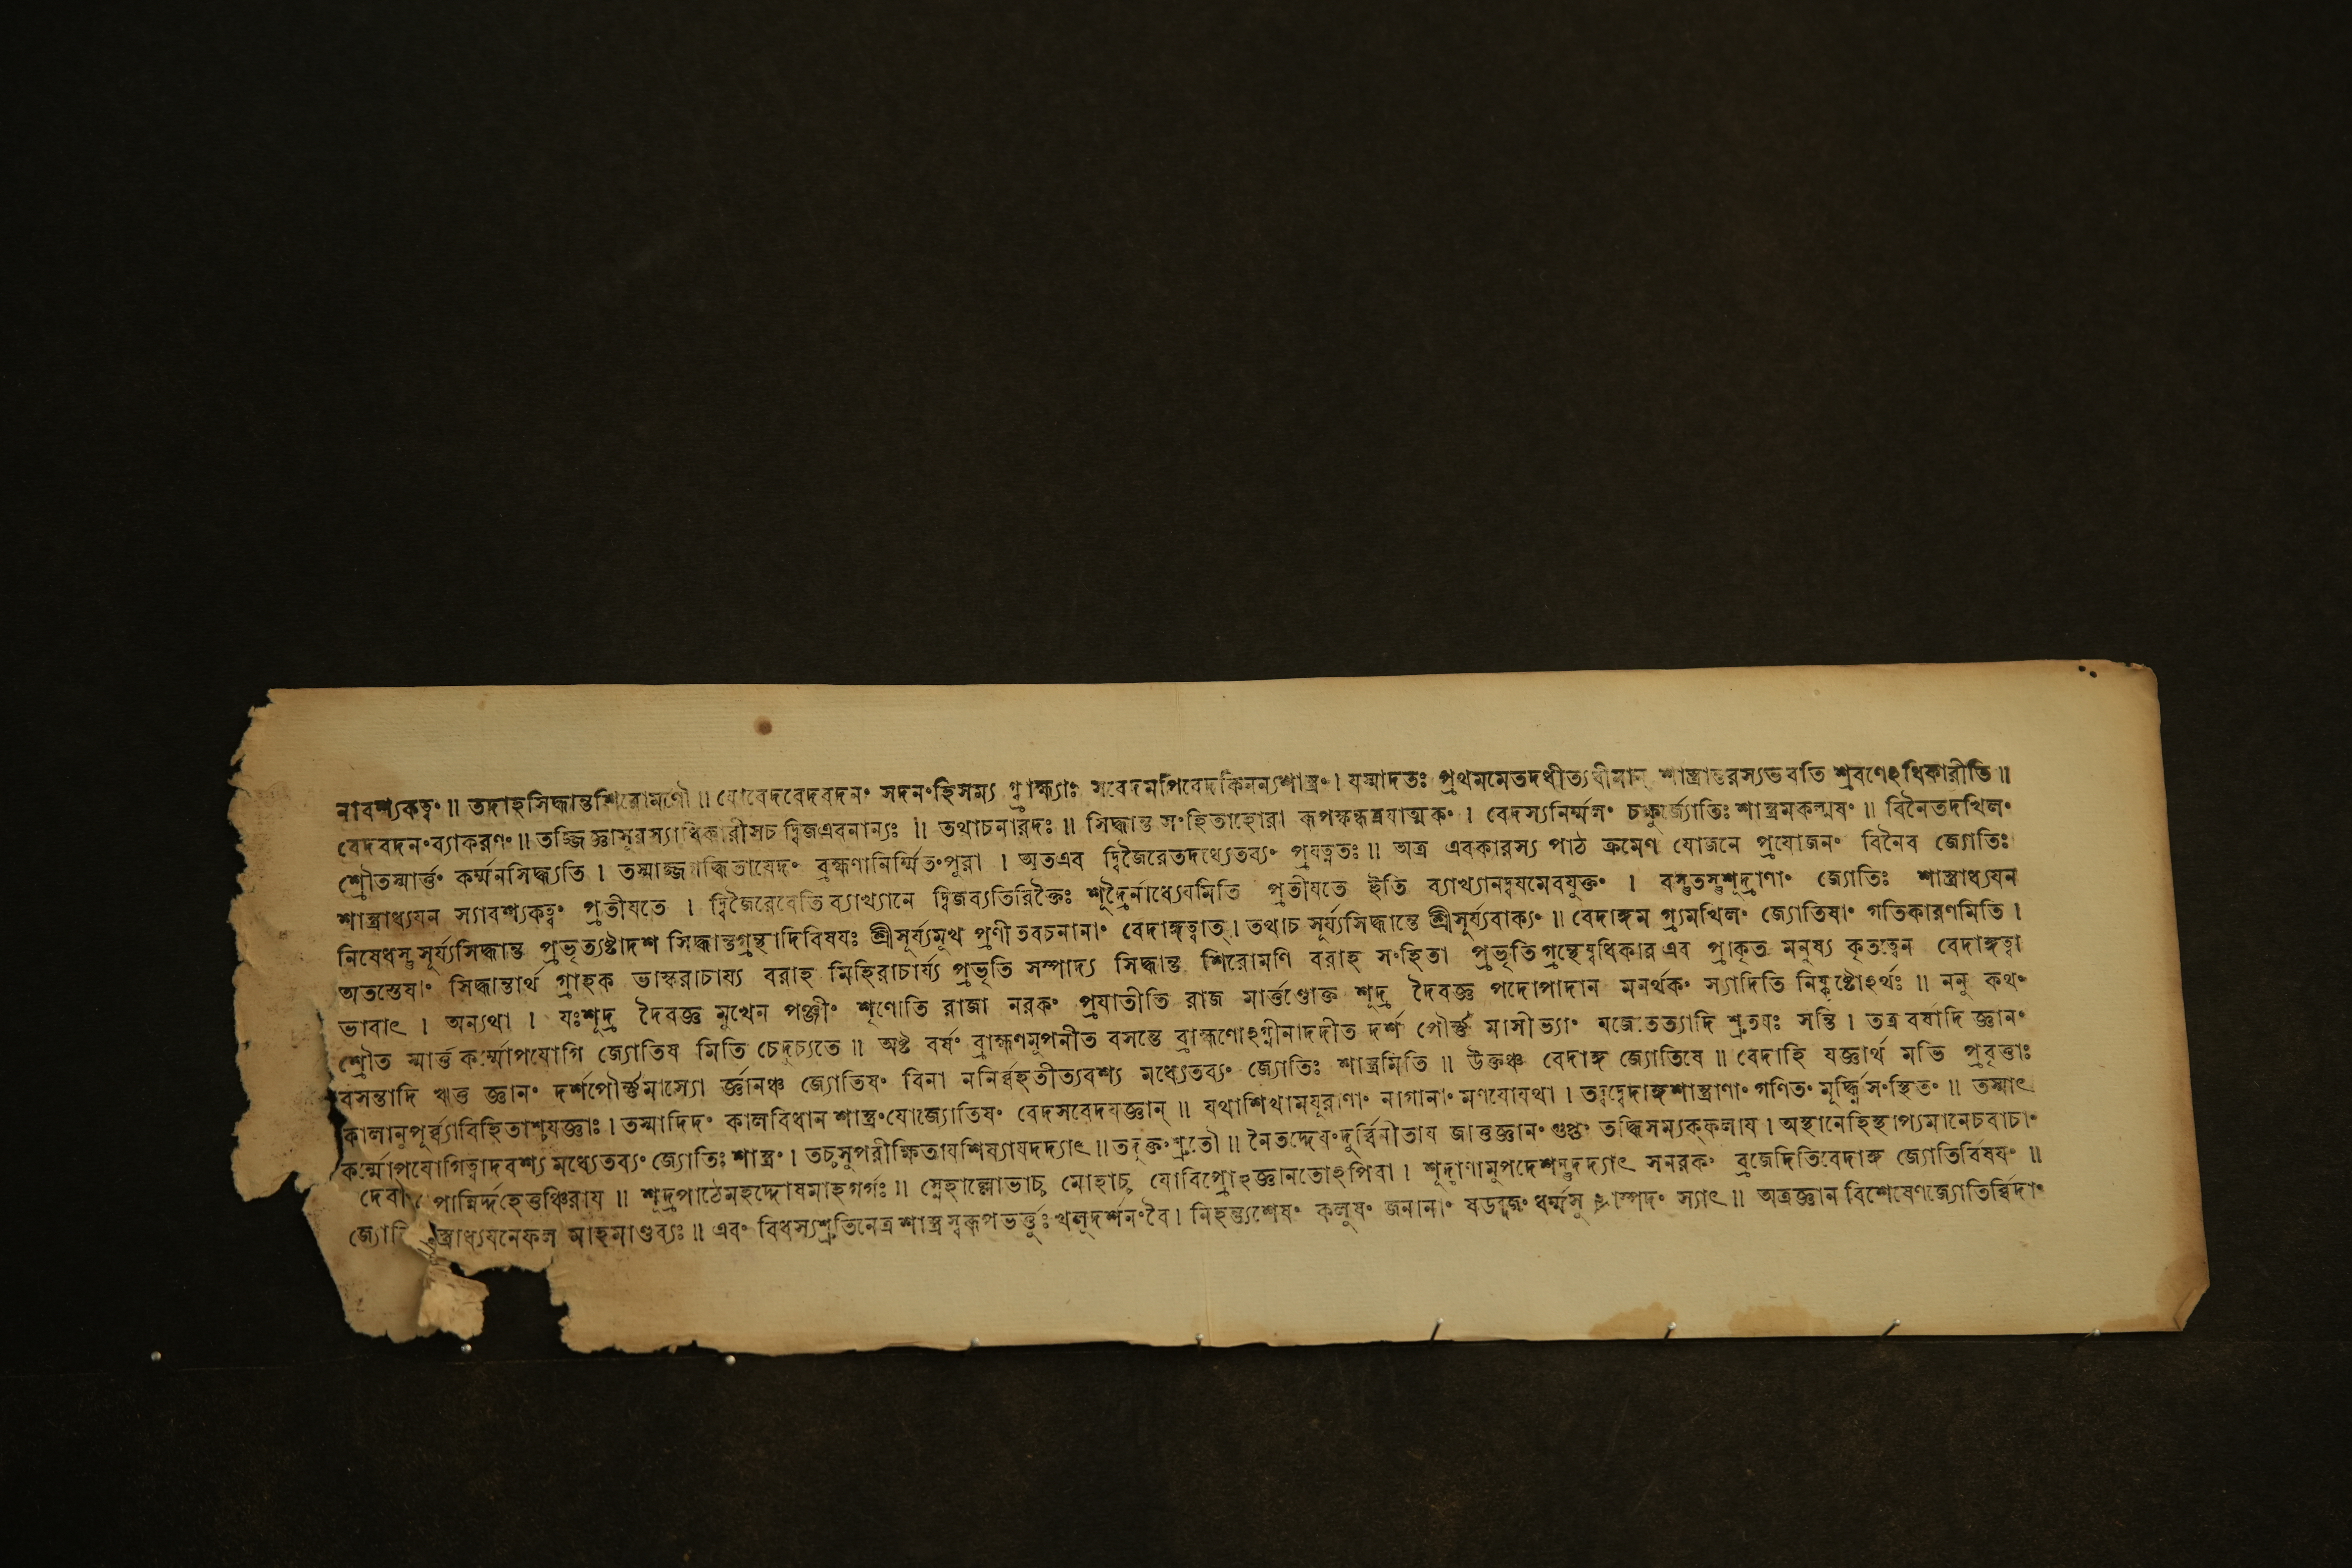 নাবশ্যকত্বং ॥ তদাহসিদ্ধান্তশিরোমণৌ ॥ যোবেদবেদবদনং সদনংহিসম্য গ্ব্রাহ্ম্যাঃ সবেদমপিবেদকিমন্যশাস্ত্রং । যস্মাদতঃ প্রথমমেতদধীত্যধীমান্ শাস্ত্রান্তরস্যভবতি শ্রবণেঽধিকারীতি ॥
বেদবদনংব্যাকরণং ॥ তজ্জিজ্ঞাসুরস্যাধিকারীসচ দ্বিজএবনান্যঃ ॥ তথাচনারদঃ ॥ সিদ্ধান্ত সংহিতাহোরা রূপস্কন্ধত্রয়াত্মকং । বেদস্যনির্ম্মলং চক্ষুর্জ্যোতিঃ শাস্ত্রমকল্মষং ॥ বিনৈতদখিলং
শ্রৌতস্মার্ত্তং কর্ম্মনসিদ্ধ্যতি । তস্মাজ্জগদ্ধিতাযেদং ব্রহ্মণানির্ম্মিতংপুরা । অতএব দ্বিজৈরেতদধ্যেতব্যং প্রযত্নতঃ ॥ অত্র এবকারস্য পাঠ ক্রমেণ যোজনে প্রযোজনং বিনৈব জ্যোতিঃ
শাস্ত্রাধ্যযন স্যাবশ্যকত্বং প্রতীযতে । দ্বিজৈরেবেতি ব্যাখ্যানে দ্বিজব্যতিরিক্তৈঃ শূদ্রৈর্নাধ্যেযমিতি প্রতীযতে ইতি ব্যাখ্যানদ্বযমেবযুক্তং । বস্তুতস্তুশূদ্রাণাং জ্যোতিঃ শাস্ত্রাধ্যযন
নিষেধস্তু সূর্য্যসিদ্ধান্ত প্রভৃত্যষ্টাদশ সিদ্ধান্তগ্রন্থাদিবিষযঃ শ্রীসূর্য্যমুখ প্রণীতবচনানাং বেদাঙ্গত্বাত্ । তথাচ সূর্য্যসিদ্ধান্তে শ্রীসূর্য্যবাক্যং ॥ বেদাঙ্গম গ্র্যমখিলং জ্যোতিষাং গতিকারণমিতি ।
অতস্তেষাং সিদ্ধান্তার্থ গ্রাহক ভাস্করাচায্য বরাহ মিহিরাচার্য্য প্রভৃতি সম্পাদ্য সিদ্ধান্ত শিরোমণি বরাহ সংহিতা প্রভৃতি গ্রন্থেষ্বধিকার এব প্রাকৃত মনুষ্য কৃতত্বেন বেদাঙ্গত্বা
ভাবাৎ । অন্যথা । যঃশূদ্র দৈবজ্ঞ মুখেন পঞ্জীং শৃণোতি রাজা নরকং প্রযাতীতি রাজ মার্ত্তণ্ডোক্ত শূদ্র দৈবজ্ঞ পদোপাদান মনর্থকং স্যাদিতি নিষ্কৃষ্টোঽর্থঃ ॥ ননু কথং
শ্রৌত স্মার্ত্ত কর্ম্মোপযোগি জ্যোতিষ মিতি চেদুচ্যতে ॥ অষ্ট বর্ষং ব্রাহ্মণমুপনীত বসন্তে ব্রাহ্মণোঽগ্নীনাদদীত দর্শ পৌর্ণ্ণ মাসীভ্যাং যজেতেত্যাদি শ্রুতযঃ সন্তি । তত্র বর্ষাদি জ্ঞানং
বসন্তাদি ঋতু জ্ঞানং দর্শপৌর্ণ্ণমাস্যো র্জ্ঞানঞ্চ জ্যোতিষং বিনা ননির্ব্বহতীত্যবশ্য মধ্যেতব্যং জ্যোতিঃ শাস্ত্রমিতি ॥ উক্তঞ্চ বেদাঙ্গ জ্যোতিষে ॥ বেদাহি যজ্ঞার্থ মভি প্রবৃত্তাঃ
কালানুপূর্ব্ব্যাবিহিতাশ্চযজ্ঞাঃ । তস্মাদিদং কালবিধান শাস্ত্রংযোজ্যোতিষং বেদসবেদযজ্ঞান্ ॥ যথাশিখামযূরাণাং নাগানাং মণযোযথা । তদ্বদ্বেদাঙ্গশাস্ত্রাণাং গণিতং মূর্দ্ধ্নিসংস্থিতং ॥ তস্মাৎ
কর্ম্মোপযোগিত্বাদবশ্য মধ্যেতব্যং জ্যোতিঃ শাস্ত্রং । তচ্চসুপরীক্ষিতাযশিষ্যাযদদ্যাৎ ॥ তদুক্তংশ্রুতৌ ॥ নৈতদ্দেযংদুর্ব্বিনীতায জান্তজ্ঞানং গুপ্তং তদ্ধিসম্যক্‌ফলায । অস্থানেহিস্থাপ্যমানেচবাচাং
দেবী পান্নির্দ্দহেত্তঞ্চিরায ॥ শূদ্রপাঠেমহদ্দোষমাহগর্গঃ ॥ স্নেহাল্লোভাচ্চ মোহাচ্চ যোবিপ্রোঽজ্ঞানতোঽপিবা । শূদ্রাণামুপদেশন্তুদদ্যাৎ সনরকং ব্রজেদিতিবেদাঙ্গ জ্যোতির্বিষযং ॥
স্ত্রাধ্যযনেফল মাহমাণ্ডব্যঃ ॥ এবং বিধস্যশ্রুতিনেত্র শাস্ত্রস্বরূপভর্ত্তুঃ খলুদর্শনংবৈ । নিহন্ত্যশেষং কলুষং জনানাং ষডব্দজং ধর্ম্মসু স্যাৎ ॥ অত্রজ্ঞান বিশেষেণজ্যোতির্ব্বিদাং